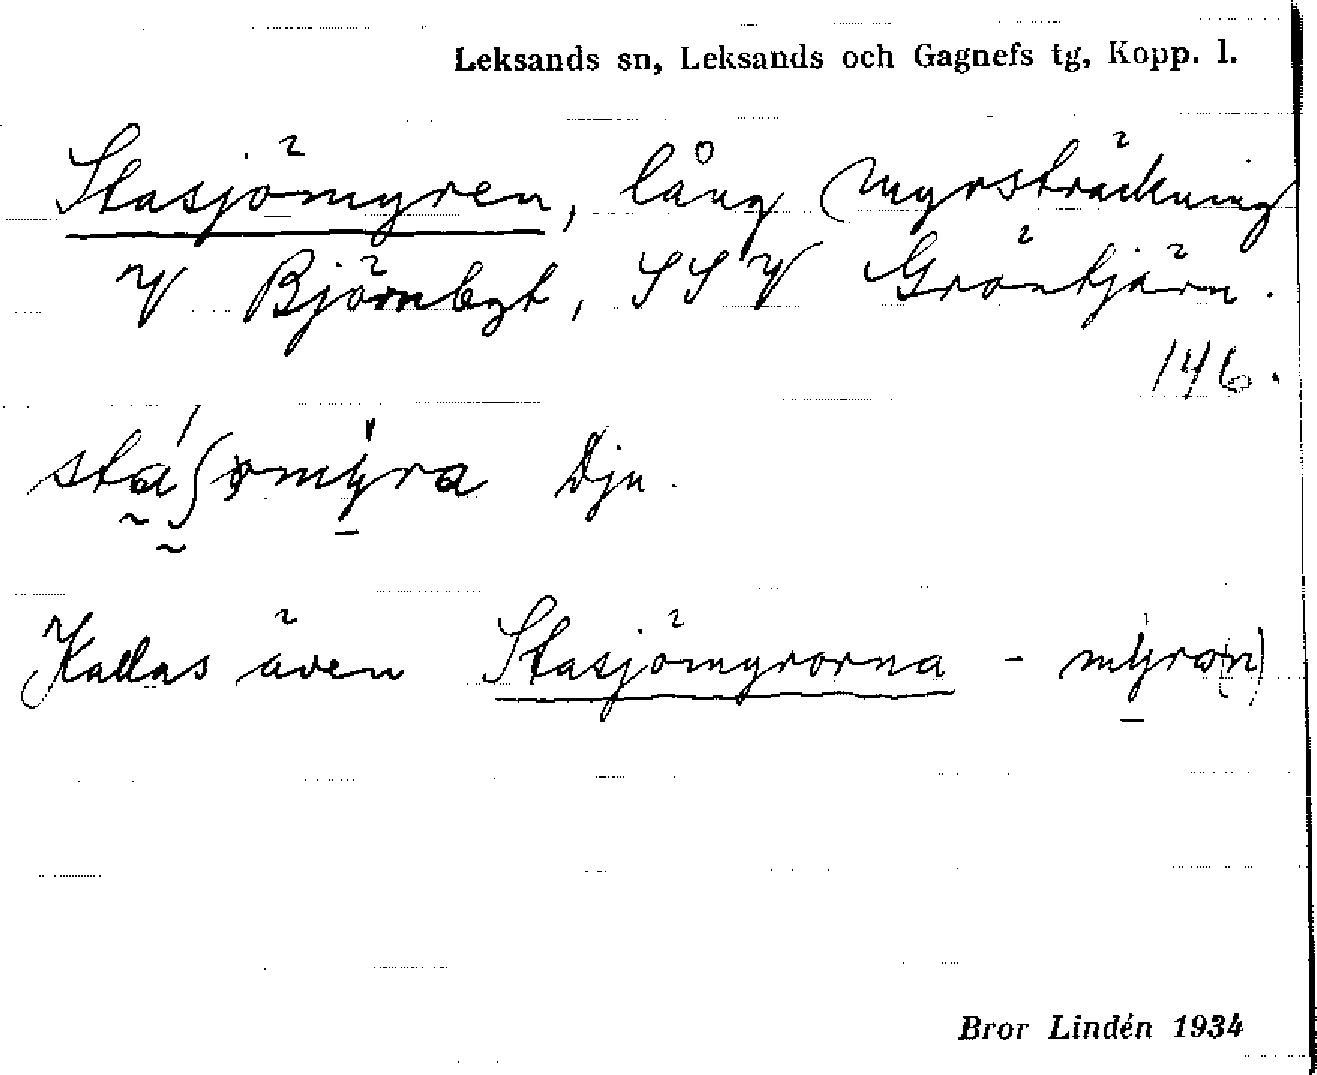 Leksands sn, Leksands och Gagnefs tg, Kopp. l.
Stasjömyren, lång myrsträckning
V Björnbgt, SSV Gröntjärn.
146.
Dju.
Kallas även Stasjömyrorna - myra(n)
Bror Lindén 1934